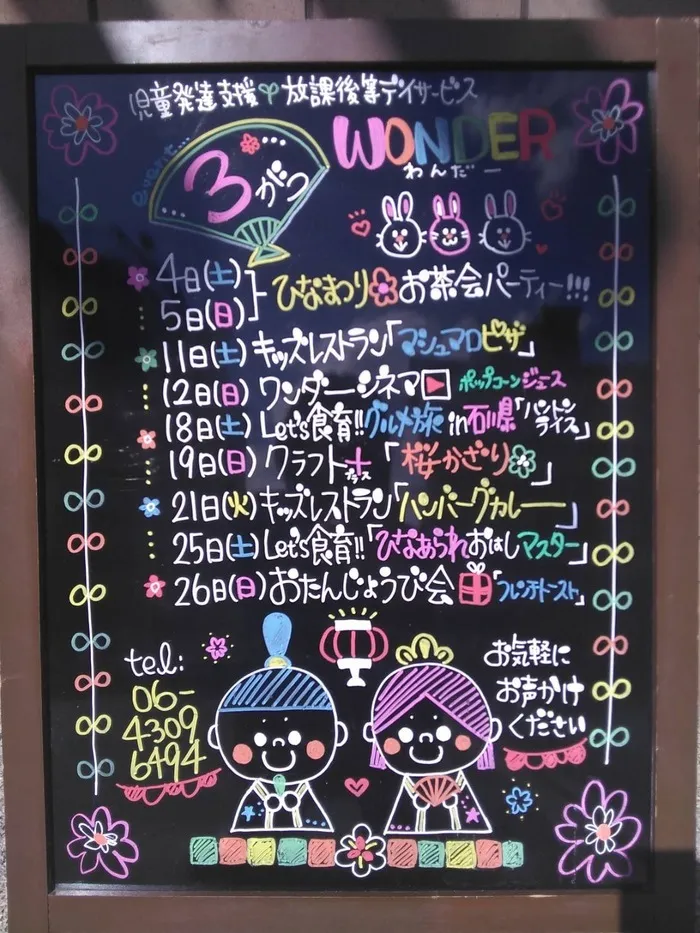 児童発達支援 放課後等デイサービス
event...
3がつ
WONDER
わんだー
4日(土)
5日(日)
ひなまつり お茶会パーティー!!!
11日(土) キッズレストラン「マシュマロピザ」
12日(日) ワンダーシネマ ポップコーンジュース
18日(土) Let's食育!!グルメ旅in石川県「ハントンライス」
19日(日) クラフト+プラス「桜かざり」
21日(火) キッズレストラン「ハンバーグカレー」
25日(土) Let's食育!!「ひなあられおはしマスター」
26日(日) おたんじょうび会「フレンチトースト」
tel:
06-
4309
6494
お気軽に
お声かけ
ください